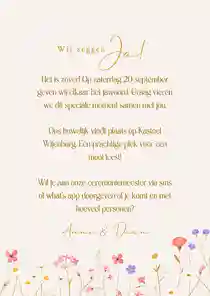 Wij zeggen Ja!
Het is zover! Op zaterdag 20 september
geven wij elkaar het jawoord. Graag vieren
we dit speciale moment samen met jou.
Ons huwelijk vindt plaats op Kasteel
Wijenburg. Een prachtige plek voor een
mooi feest!
Wil je aan onze ceremoniemeester via sms
of what's app doorgeven of je komt en met
hoeveel personen?
&